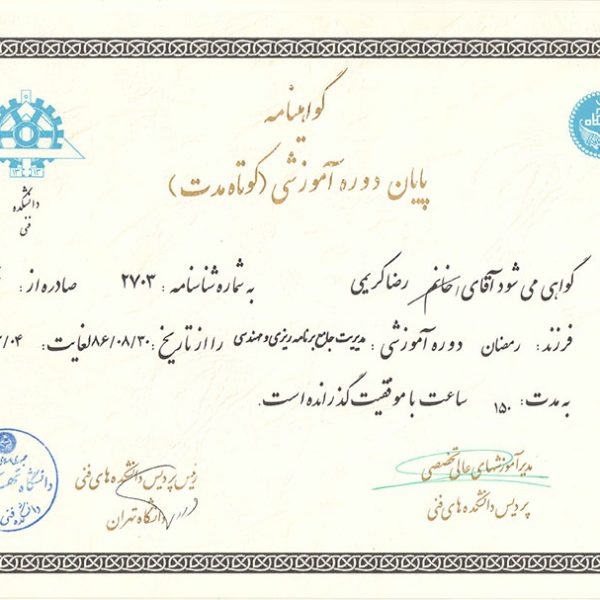 گواهینامه
پایان دوره آموزشی (کوتاه مدت)
دانشکده
فنی
گواهی می شود آقای/خانم رضا کریمی به شماره شناسنامه : ۲۷۰۳ صادره از :
فرزند : رمضان دوره آموزشی : مدیریت جامع برنامه ریزی و مهندسی را از تاریخ : ۸۶/۰۸/۳۰ لغایت :
به مدت : ۱۵۰ ساعت با موفقیت گذرانده است.
مدیر آموزشهای عالی تخصصی
پردیس دانشکده های فنی
رئیس پردیس دانشکده های فنی
دانشگاه تهران
دانشکده فنی